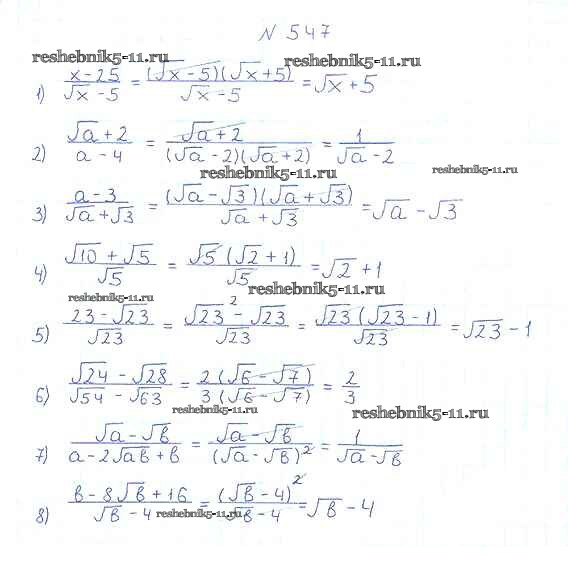 N 547
reshebnik5-11.ru reshebnik5-11.ru
1) (x-25)/(√x-5) = ((√x-5)(√x+5))/(√x-5) = √x+5
2) (√a+2)/(a-4) = (√a+2)/((√a-2)(√a+2)) = 1/(√a-2)
reshebnik5-11.ru reshebnik5-11.ru
3) (a-3)/(√a+√3) = ((√a-√3)(√a+√3))/(√a+√3) = √a-√3
4) (√10+√5)/√5 = (√5(√2+1))/√5 = √2+1
reshebnik5-11.ru reshebnik5-11.ru
5) (23-√23)/√23 = (√23²-√23)/√23 = (√23(√23-1))/√23 = √23-1
6) (√24-√28)/(√54-√63) = (2(√6-√7))/(3(√6-√7)) = 2/3
reshebnik5-11.ru reshebnik5-11.ru
7) (√a-√b)/(a-2√ab+b) = (√a-√b)/(√a-√b)² = 1/(√a-√b)
8) (b-8√b+16)/(√b-4) = (√b-4)²/(√b-4) = √b-4
reshebnik5-11.ru